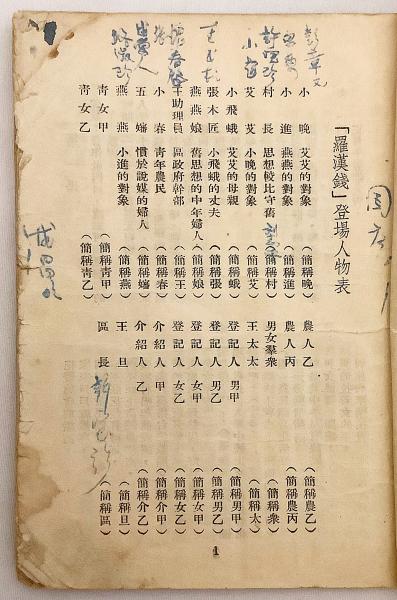 「羅漢錢」登場人物表
小　晚　艾艾的對象　（簡稱晚）　農人乙　（簡稱農乙）
小　進　燕燕的對象　（簡稱進）　農人丙　（簡稱農丙）
村　長　思想較比守舊　（簡稱村）　男女羣衆　（簡稱衆）
艾　艾　小晚的對象　（簡稱艾）　王太太　（簡稱太）
小飛蛾　艾艾的母親　（簡稱蛾）　登記人　男甲　（簡稱男甲）
張木匠　小飛蛾的丈夫　（簡稱張）　登記人　男乙　（簡稱男乙）
燕燕娘　舊思想的中年婦人　（簡稱娘）　登記人　女甲　（簡稱女甲）
王助理員　區政府幹部　（簡稱王）　登記人　女乙　（簡稱女乙）
小　春　青年農民　（簡稱春）　介紹人　甲　（簡稱介甲）
五　嬸　慣於說媒的婦人　（簡稱嬸）　介紹人　乙　（簡稱介乙）
燕　燕　小進的對象　（簡稱燕）　王　旦　（簡稱旦）
青女甲　（簡稱青甲）　區　長　（簡稱區）
青女乙　（簡稱青乙）
1